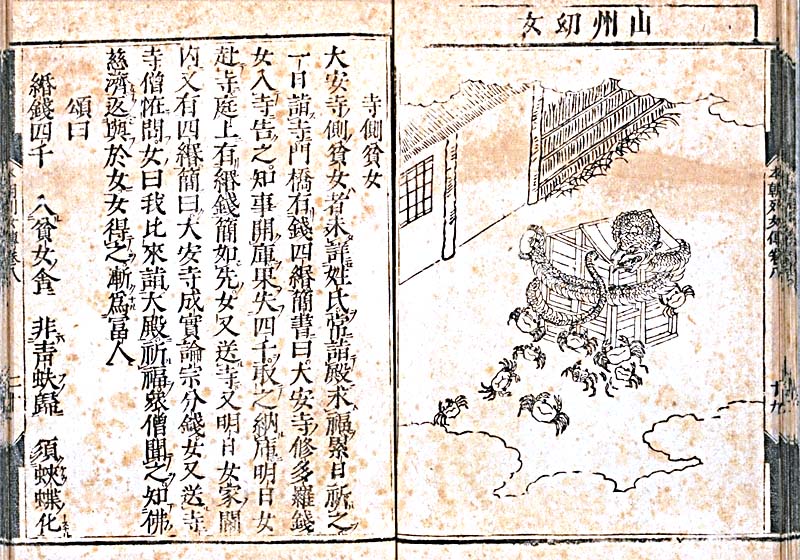 山州幼女
本朝列女傳卷八
十九
寺側貧女
大安寺側貧女者未詳姓氏常詣殿求福累日祈之
一日詣寺門橋有錢四緡簡書曰大安寺修多羅錢
女入寺告之知事開庫果失四千取之納庫明日女
赴寺庭上有緡錢簡如先女又送寺又明日女家閫
内又有四緡簡曰大安寺成實論宗分錢女又送寺
寺僧恠問女曰我比來詣大殿祈福衆僧聞之知佛
慈濟返與於女女得之漸為富人
頌曰
緡錢四千 入貧女舍 非青蚨歸 須蛺蝶化